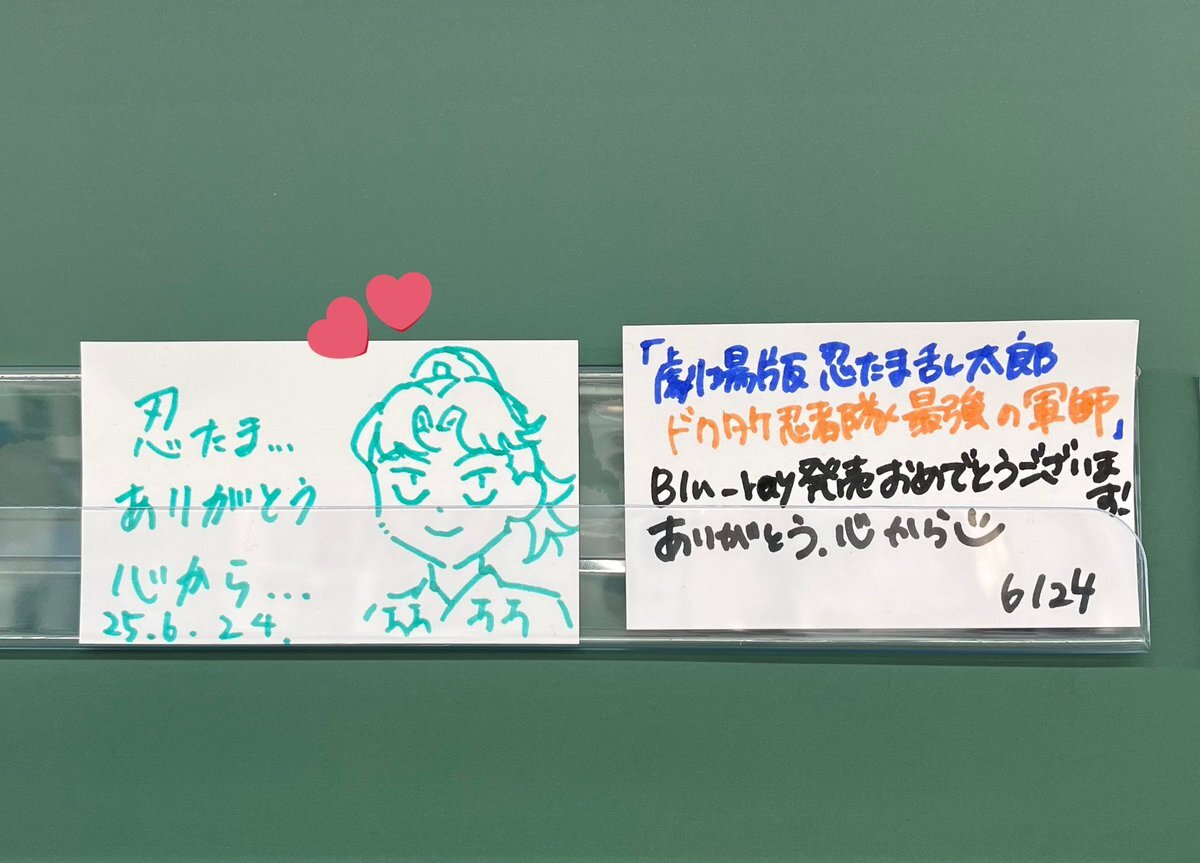 忍たま...
ありがとう
心から...
25.6.24.
「劇場版 忍たま乱太郎
ドクタケ忍者隊 最強の軍師」
Blu-ray発売おめでとうございます!
ありがとう、心から
6/24